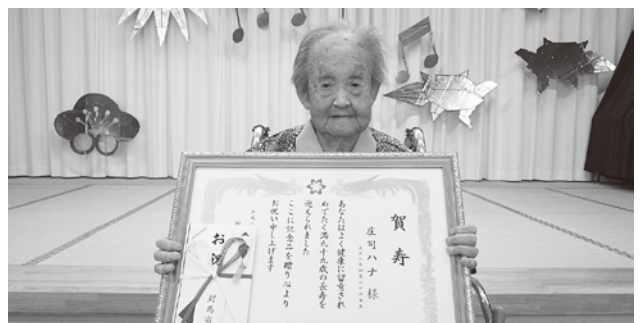 賀寿
庄司ハナ 様
あなたはよく健康に留意され
めでたく満九十九歳の長寿を
迎えられました
ここに記念品を贈り心より
お祝い申し上げます
お祝
対馬